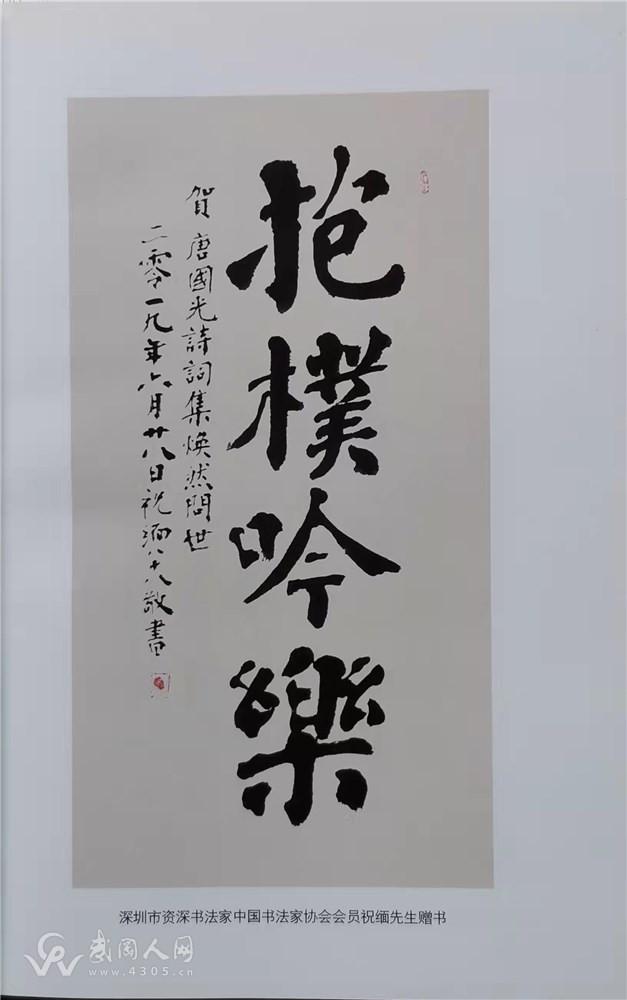 抱樸吟樂
賀唐國光詩詞集煥然問世
二零一九年六月廿八日祝湎八十八敬書
深圳市资深书法家中国书法家协会会员祝缅先生赠书
武冈人网
www.4305.cn